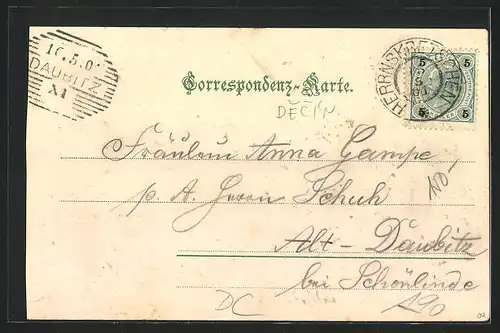 16.5.0
DAUBITZ
XI
HERRNSKRETSCHEN
5 5
5 5
Correspondenz-Karte.
DĚČÍN
Fräulein Anna Gampe
p. A. Herrn Schuh
Alt-Daubitz
bei Schönlinde
DC
190